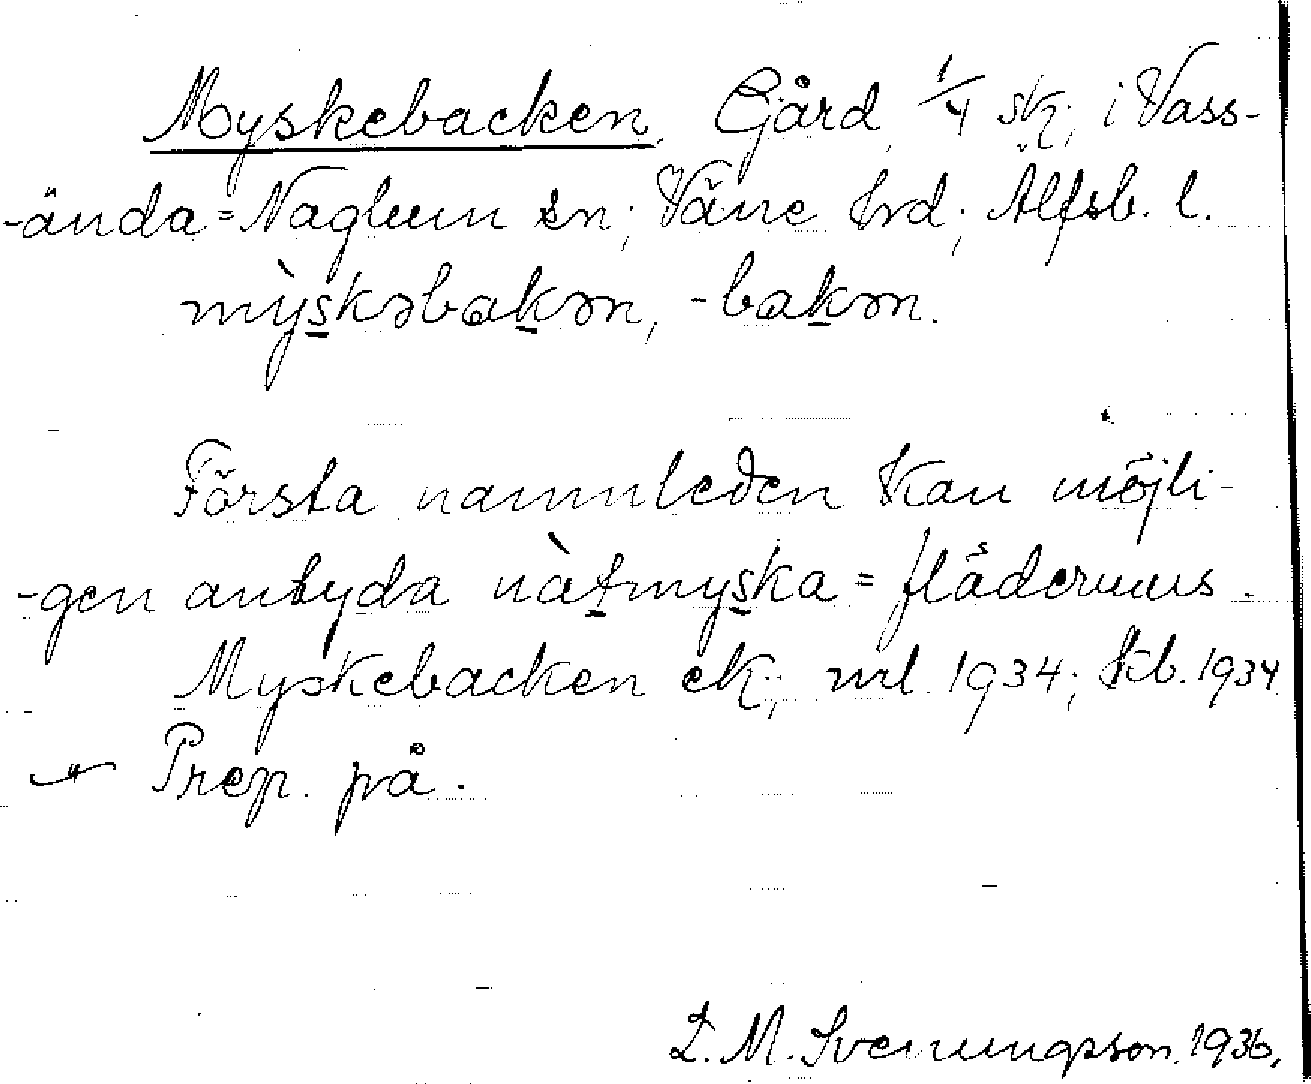 Myskebacken. Gård, 1/4 sk; i Vass-
-ända-Naglum sn; Väne hrd; Älfsb. l.
mỳskəbakən, -bakən.
Första namnleden kan möjli-
-gen antyda nàtmyska = flädermus.
Myskebacken ek; ml 1934; kb. 1934
Prep. på.
L. M. Svenungsson. 1936.